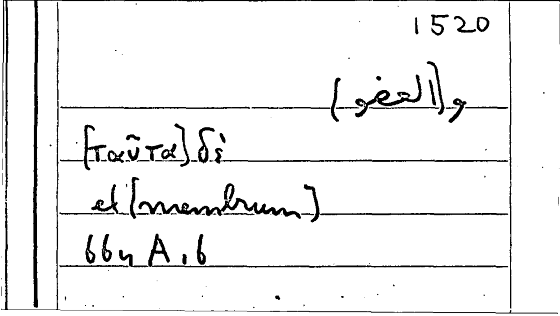 1520
و(العضو)
[ταῦτα] δὲ
et [membrum]
664 A, 6